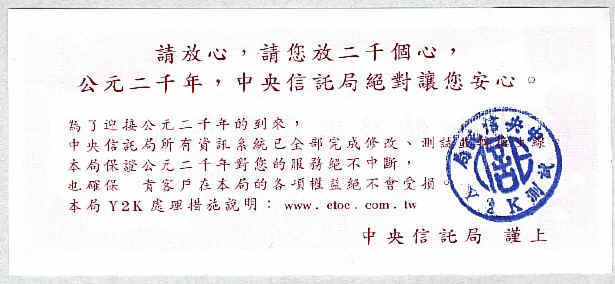 請放心，請您放二千個心，
公元二千年，中央信託局絕對讓您安心。
為了迎接公元二千年的到來，
中央信託局所有資訊系統已全部完成修改、測試
本局保證公元二千年對您的服務絕不中斷，
也確保 貴客戶在本局的各項權益絕不會受損。
本局Y2K處理措施說明：www.ctoc.com.tw
中央信託局 謹上
中央信託局
Y2K測試